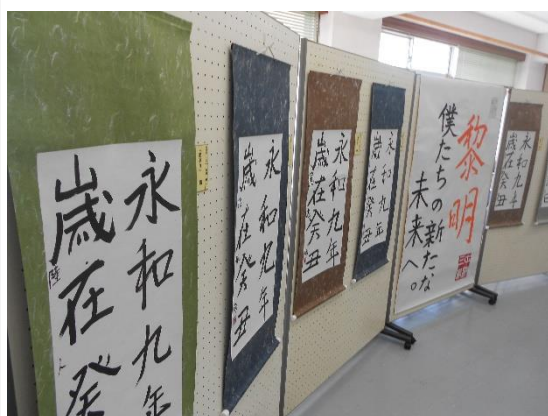 永和九年
歳在癸
永和九年
歳在癸丑
永和九年
歳在癸丑
永和九年
歳在癸丑
黎明
僕たちの新たな
未来へ。
永和九年
歳在癸丑